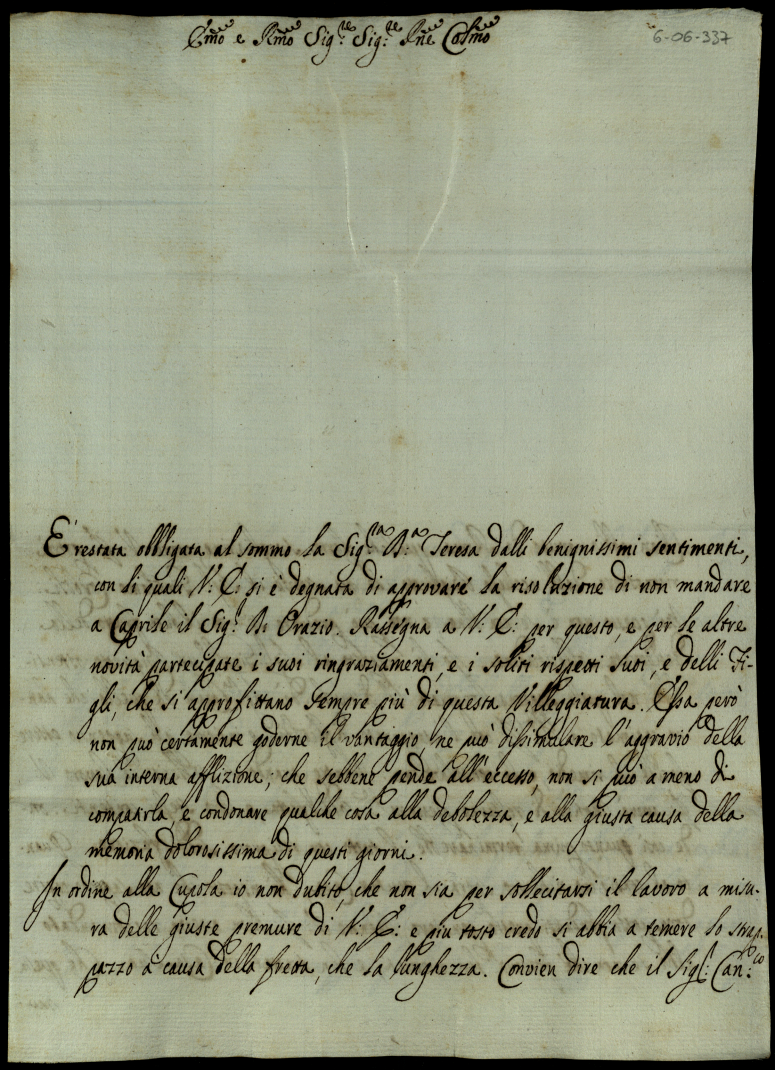 Emo e Rmo Sig:re Sig:re Pne Colmo
6-06-337
È restata obbligata al sommo la Sig:ra B:a Teresa dalli benignissimi sentimenti,
con li quali V: E: si è degnata di approvare la risoluzione di non mandare
a Caprile il Sig: B: Orazio. Rassegna a V: E: per questo, e per le altre
novità partecipate i suoi ringraziamenti, e i soliti rispetti suoi, e delli Fi-
gli, che si approfittano sempre più di questa Villeggiatura. Essa però
non può certamente goderne il vantaggio, ne può dissimulare l'aggravio della
sua interna afflizione; che sebbene pende all'eccesso, non si può a meno di
compatirla, e condonare qualche cosa alla debolezza, e alla giusta causa della
memoria dolorosissima di questi giorni.
In ordine alla Cupola io non dubito, che non sia per sollecitarsi il lavoro a misu-
ra delle giuste premure di V: E: e più tosto credo si abbia a temere lo strap-
pazzo a causa della fretta, che la lunghezza. Convien dire che il Sig: Can:co